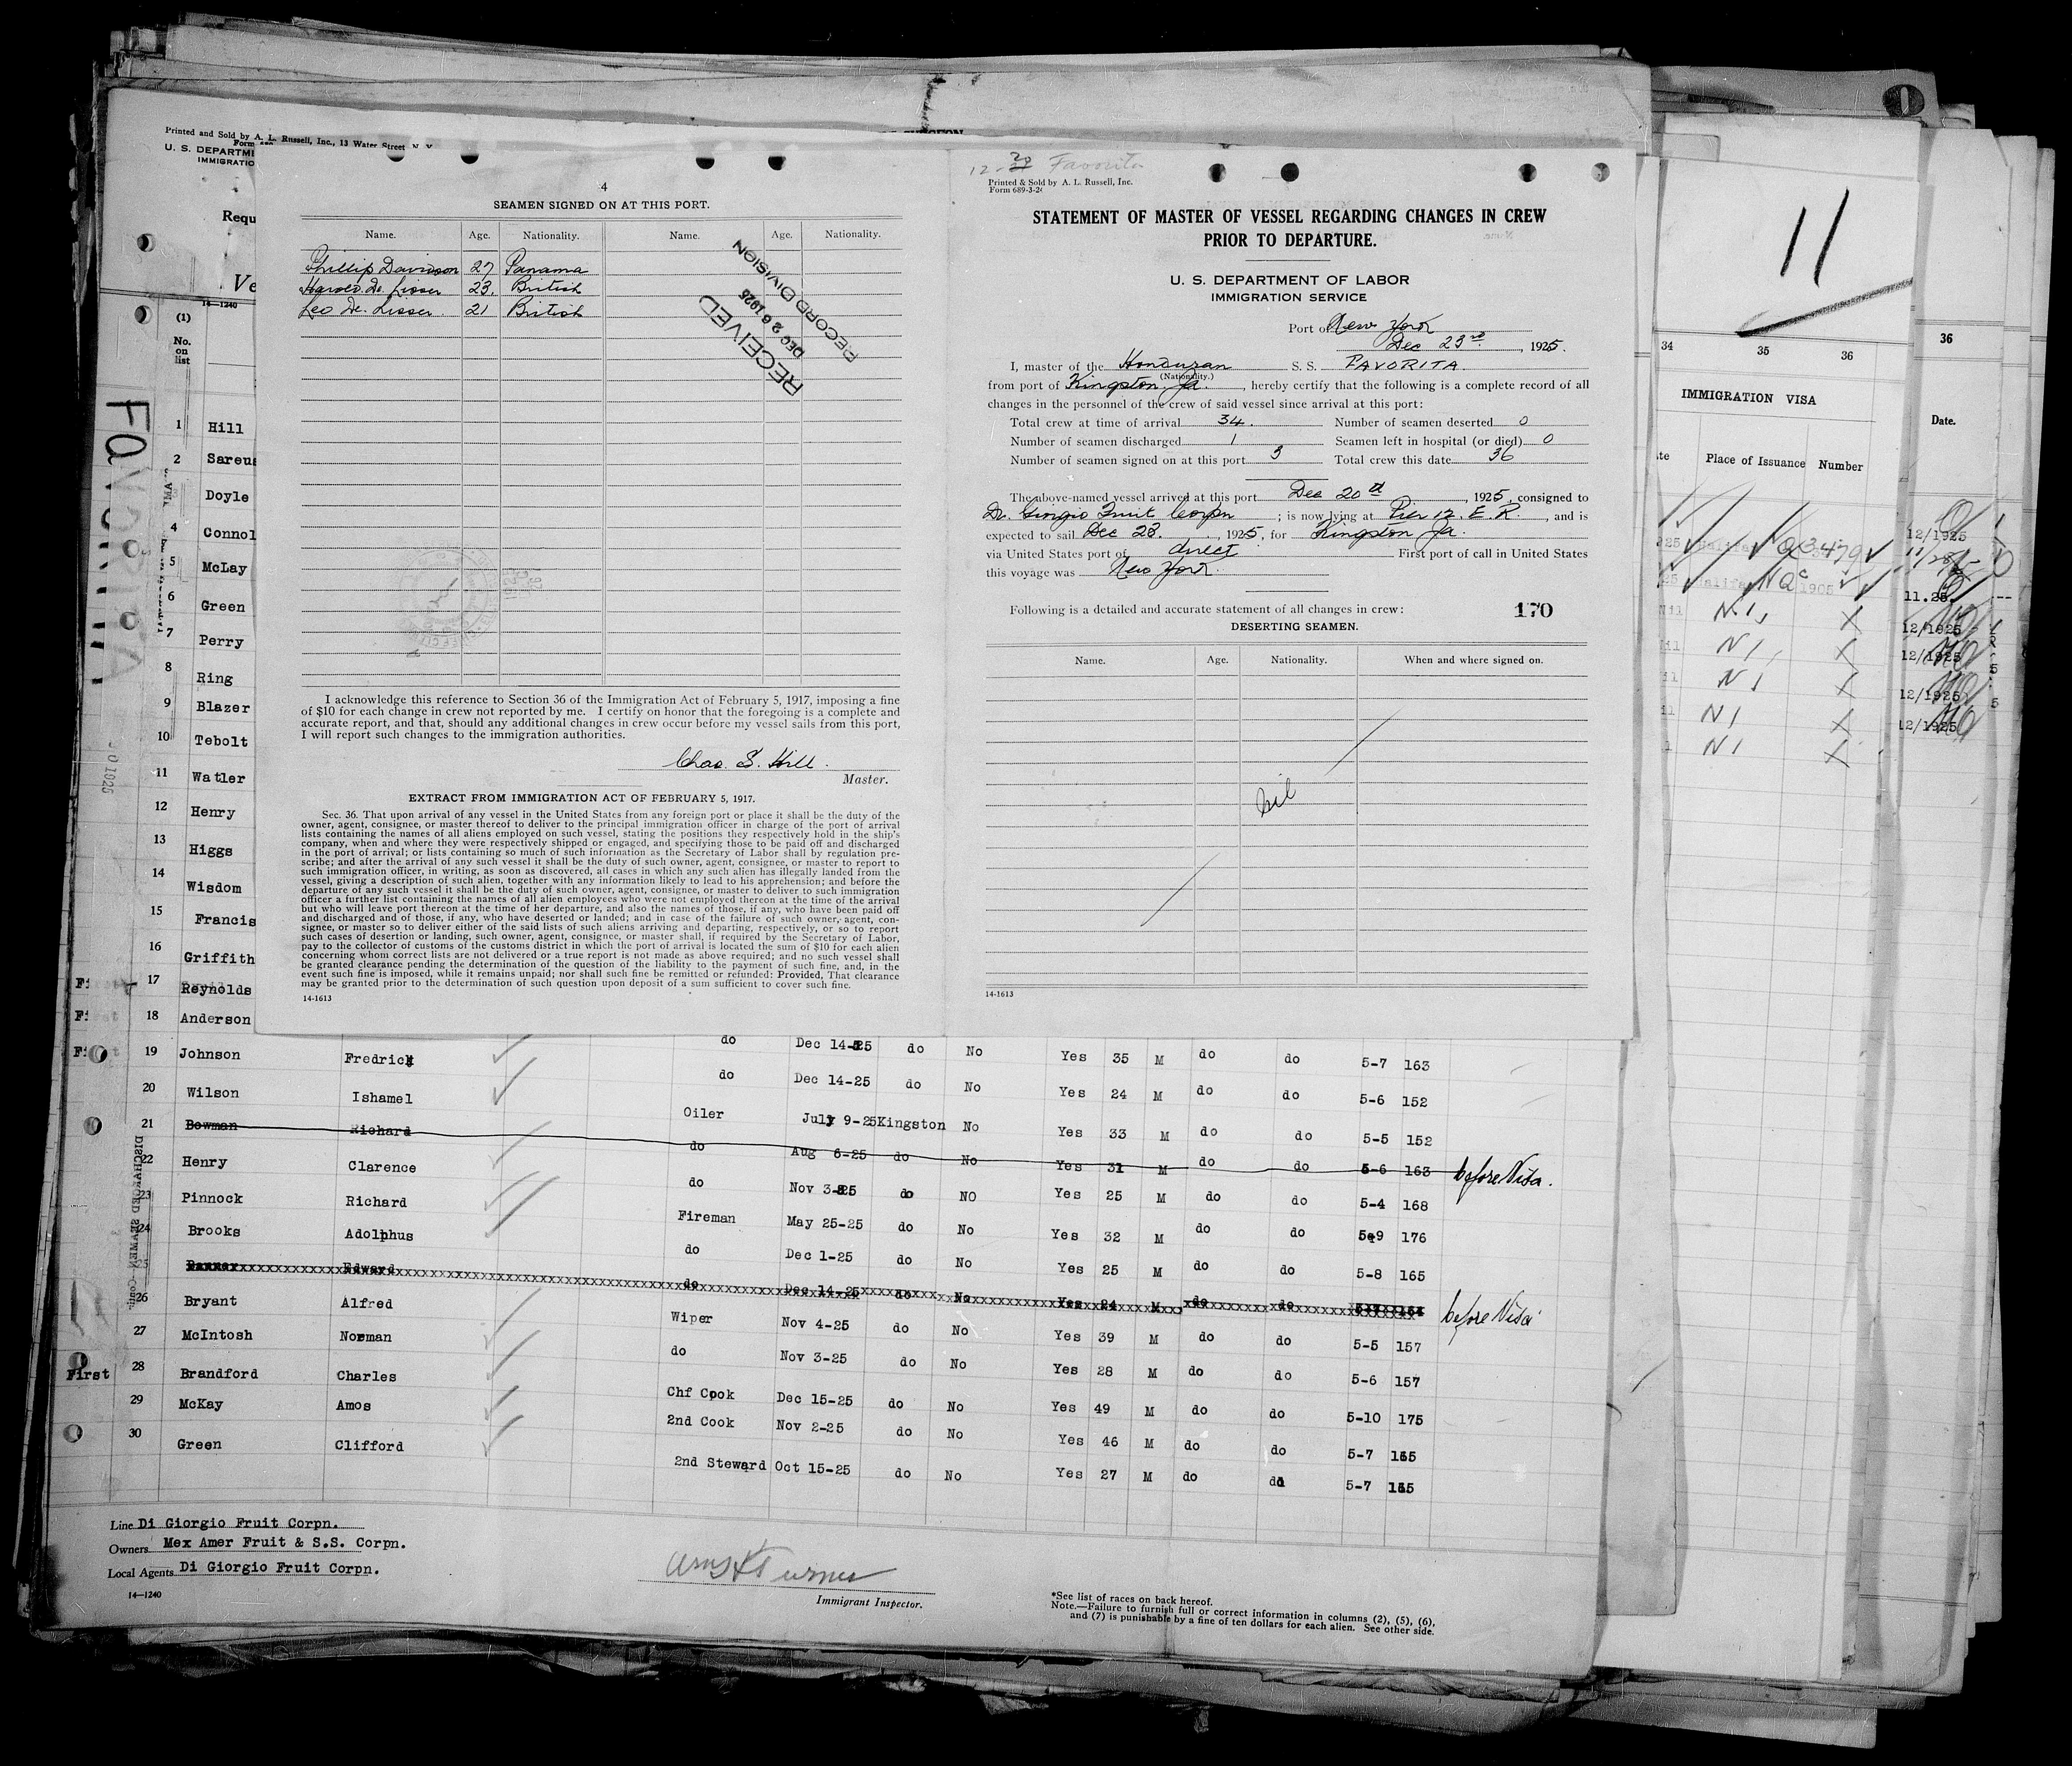 Printed and Sold by A. L. Russell, Inc., 13 Water Street, N. Y.
U. S. DEPARTM
IMMIGRATIO
Requ
Ve
14-1240
(1)
No.
on
list
FAVORITA
1 Hill
2
Doyle
4 Connol
5 McLay
6 Green
7 Perry
8 Ring
9 Blazer
10 Tebolt
11 Watler
12 Henry
13 Higgs
14 Wisdom
15 Francis
16 Griffith
17 Reynolds
18 Anderson
4
SEAMEN SIGNED ON AT THIS PORT.
Name. Age. Nationality. Name. Age. Nationality.
Phillip Davidson 27 Panama
Harold De Lisser 23. British
Leo De. Lisser. 21 British
RECEIVED
DEC 26 1925
RECORD DIVISION
I acknowledge this reference to Section 36 of the Immigration Act of February 5, 1917, imposing a fine
of $10 for each change in crew not reported by me. I certify on honor that the foregoing is a complete and
accurate report, and that, should any additional changes in crew occur before my vessel sails from this port,
I will report such changes to the immigration authorities.
Chas. S. Hill.
Master.
EXTRACT FROM IMMIGRATION ACT OF FEBRUARY 5, 1917.
Sec. 36. That upon arrival of any vessel in the United States from any foreign port or place it shall be the duty of the
owner, agent, consignee, or master thereof to deliver to the principal immigration officer in charge of the port of arrival
lists containing the names of all aliens employed on such vessel, stating the positions they respectively hold in the ship's
company, when and where they were respectively shipped or engaged, and specifying those to be paid off and discharged
in the port of arrival; or lists containing so much of such information as the Secretary of Labor shall by regulation pre-
scribe; and after the arrival of any such vessel it shall be the duty of such owner, agent, consignee, or master to report to
such immigration officer, in writing, as soon as discovered, all cases in which any such alien has illegally landed from the
vessel, giving a description of such alien, together with any information likely to lead to his apprehension; and before the
departure of any such vessel it shall be the duty of such owner, agent, consignee, or master to deliver to such immigration
officer a further list containing the names of all alien employees who were not employed thereon at the time of the arrival
but who will leave port thereon at the time of her departure, and also the names of those, if any, who have been paid off
and discharged and of those, if any, who have deserted or landed; and in case of the failure of such owner, agent, con-
signee, or master so to deliver either of the said lists of such aliens arriving and departing, respectively, or so to report
such cases of desertion or landing, such owner, agent, consignee, or master shall, if required by the Secretary of Labor,
pay to the collector of customs of the customs district in which the port of arrival is located the sum of $10 for each alien
concerning whom correct lists are not delivered or a true report is not made as above required; and no such vessel shall
be granted clearance pending the determination of the question of the liability to the payment of such fine, and, in the
event such fine is imposed, while it remains unpaid; nor shall such fine be remitted or refunded: Provided, That clearance
may be granted prior to the determination of such question upon deposit of a sum sufficient to cover such fine.
14-1613
Favorita
Printed & Sold by A. L. Russell, Inc.
Form 689-3-24
STATEMENT OF MASTER OF VESSEL REGARDING CHANGES IN CREW
PRIOR TO DEPARTURE.
U. S. DEPARTMENT OF LABOR
IMMIGRATION SERVICE
Port of New York
Dec 23rd, 1925.
I, master of the Honduran S. S. FAVORITA.
(Nationality.)
from port of Kingston. Ja., hereby certify that the following is a complete record of all
changes in the personnel of the crew of said vessel since arrival at this port:
Total crew at time of arrival 34. Number of seamen deserted 0
Number of seamen discharged 1 Seamen left in hospital (or died) 0
Number of seamen signed on at this port 3 Total crew this date 36
The above-named vessel arrived at this port Dec 20th, 1925, consigned to
Di. Giorgio Fruit Corpn; is now lying at Pier 12. E. R., and is
expected to sail Dec 23., 1925, for Kingston Ja.
via United States port of direct First port of call in United States
this voyage was New York.
Following is a detailed and accurate statement of all changes in crew: 170
DESERTING SEAMEN.
Name. Age. Nationality. When and where signed on.
Nil
14-1613
11
34 35 36
IMMIGRATION VISA
Place of Issuance Number
N1
N1
N1
N1
N1
36
Date.
12/1925
11.25
12/1925
12/1925
12/1925
12/1925
do Dec 14-25 do No
19 Johnson Fredrick Yes 35 M do do 5-7 163
do Dec 14-25 do No
20 Wilson Ishamel Yes 24 M do do 5-6 152
Oiler July 9-25 Kingston No
21 Bowman Richard Yes 33 M do do 5-5 152
do Aug 6-25 do No
22 Henry Clarence Yes 31 M do do 5-6 163 before Visa.
do Nov 3-25 do NO
23 Pinnock Richard Yes 25 M do do 5-4 168
Fireman May 25-25 do No
24 Brooks Adolphus Yes 32 M do do 5-9 176
do Dec 1-25 do No
25 Edward Yes 25 M do do 5-8 165
do Dec 14-25 do No
26 Bryant Alfred Yes 24 M do do before Visa
Wiper Nov 4-25 do No
27 McIntosh Norman Yes 39 M do do 5-5 157
do Nov 3-25 do No
First 28 Brandford Charles Yes 28 M do do 5-6 157
Chf Cook Dec 15-25 do No
29 McKay Amos Yes 49 M do do 5-10 175
2nd Cook Nov 2-25 do No
30 Green Clifford Yes 46 M do do 5-7 165
2nd Steward Oct 15-25 do No
Yes 27 M do do 5-7
DISCHARGED SEAMEN
Line Di Giorgio Fruit Corpn.
Owners Mex Amer Fruit & S.S. Corpn.
Local Agents Di Giorgio Fruit Corpn.
14-1240
Turner
Immigrant Inspector.
*See list of races on back hereof.
Note.—Failure to furnish full or correct information in columns (2), (5), (6),
and (7) is punishable by a fine of ten dollars for each alien. See other side.